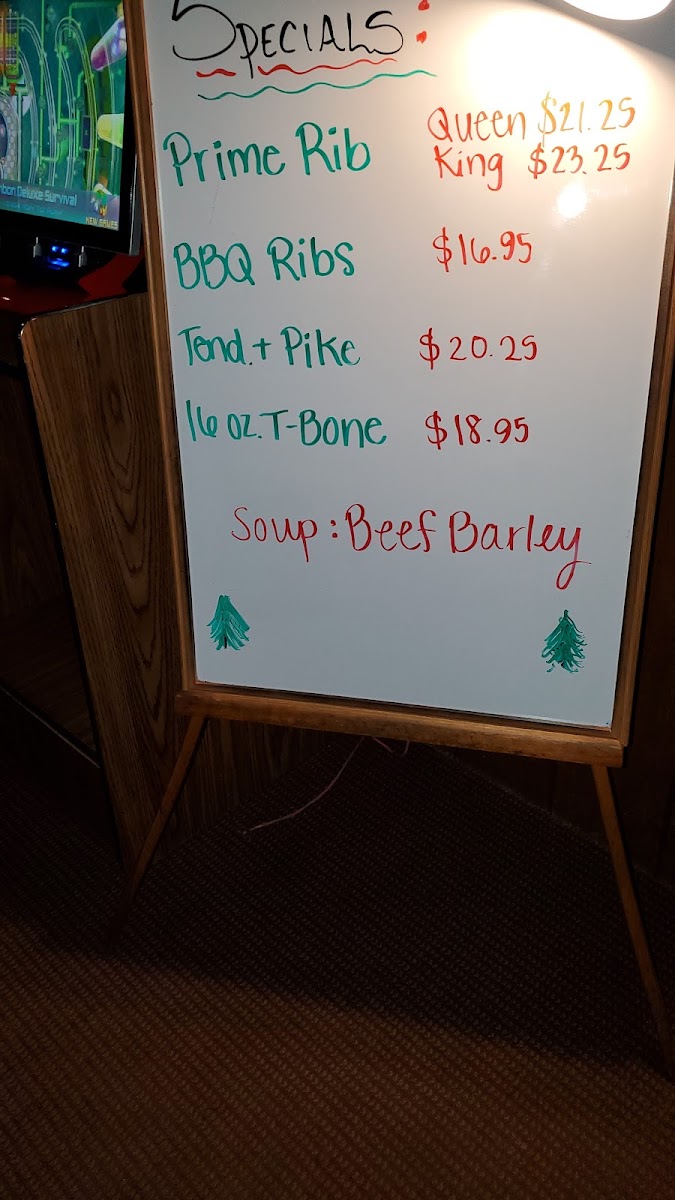 Specials:
Prime Rib Queen $21.25
King $23.25
BBQ Ribs $16.95
Tend. + Pike $20.25
16 oz. T-Bone $18.95
Soup: Beef Barley
Deluxe Survival
NEW GAMES